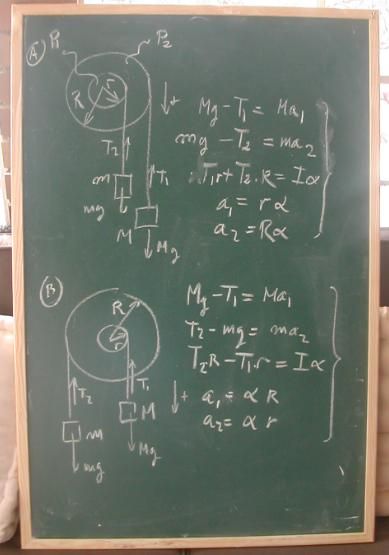 A
P₁
P₂
R
r
T₂
T₁
m
mg
M
Mg
↓+
Mg - T₁ = Ma₁
mg - T₂ = ma₂
T₁r + T₂.R = Iα
a₁ = rα
a₂ = Rα
B
R
r
T₂
T₁
m
M
mg
Mg
Mg - T₁ = Ma₁
T₂ - mg = ma₂
T₂R - T₁.r = Iα
↓+
a₁ = α R
a₂ = α r